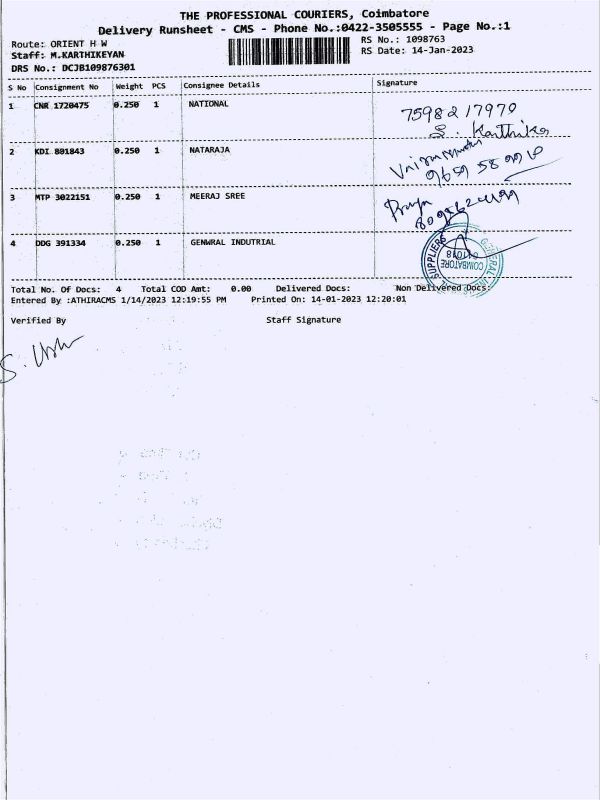 THE PROFESSIONAL COURIERS, Coimbatore
Delivery Runsheet - CMS - Phone No.:0422-3505555 - Page No.:1
Route: ORIENT H W
RS No.: 1098763
Staff: M.KARTHIKEYAN
RS Date: 14-Jan-2023
DRS No.: DCJB109876301
S No Consignment No Weight PCS Consignee Details Signature
1 CNR 1720475 0.250 1 NATIONAL 7598217970
S. Karthika
2 KDI 801843 0.250 1 NATARAJA
3 MTP 3022151 0.250 1 MEERAJ SREE Priya
4 DDG 391334 0.250 1 GENWRAL INDUTRIAL
GENERAL SUPPLIERS COIMBATORE
Total No. Of Docs: 4 Total COD Amt: 0.00 Delivered Docs: Non Delivered Docs:
Entered By :ATHIRACMS 1/14/2023 12:19:55 PM Printed On: 14-01-2023 12:20:01
Verified By Staff Signature